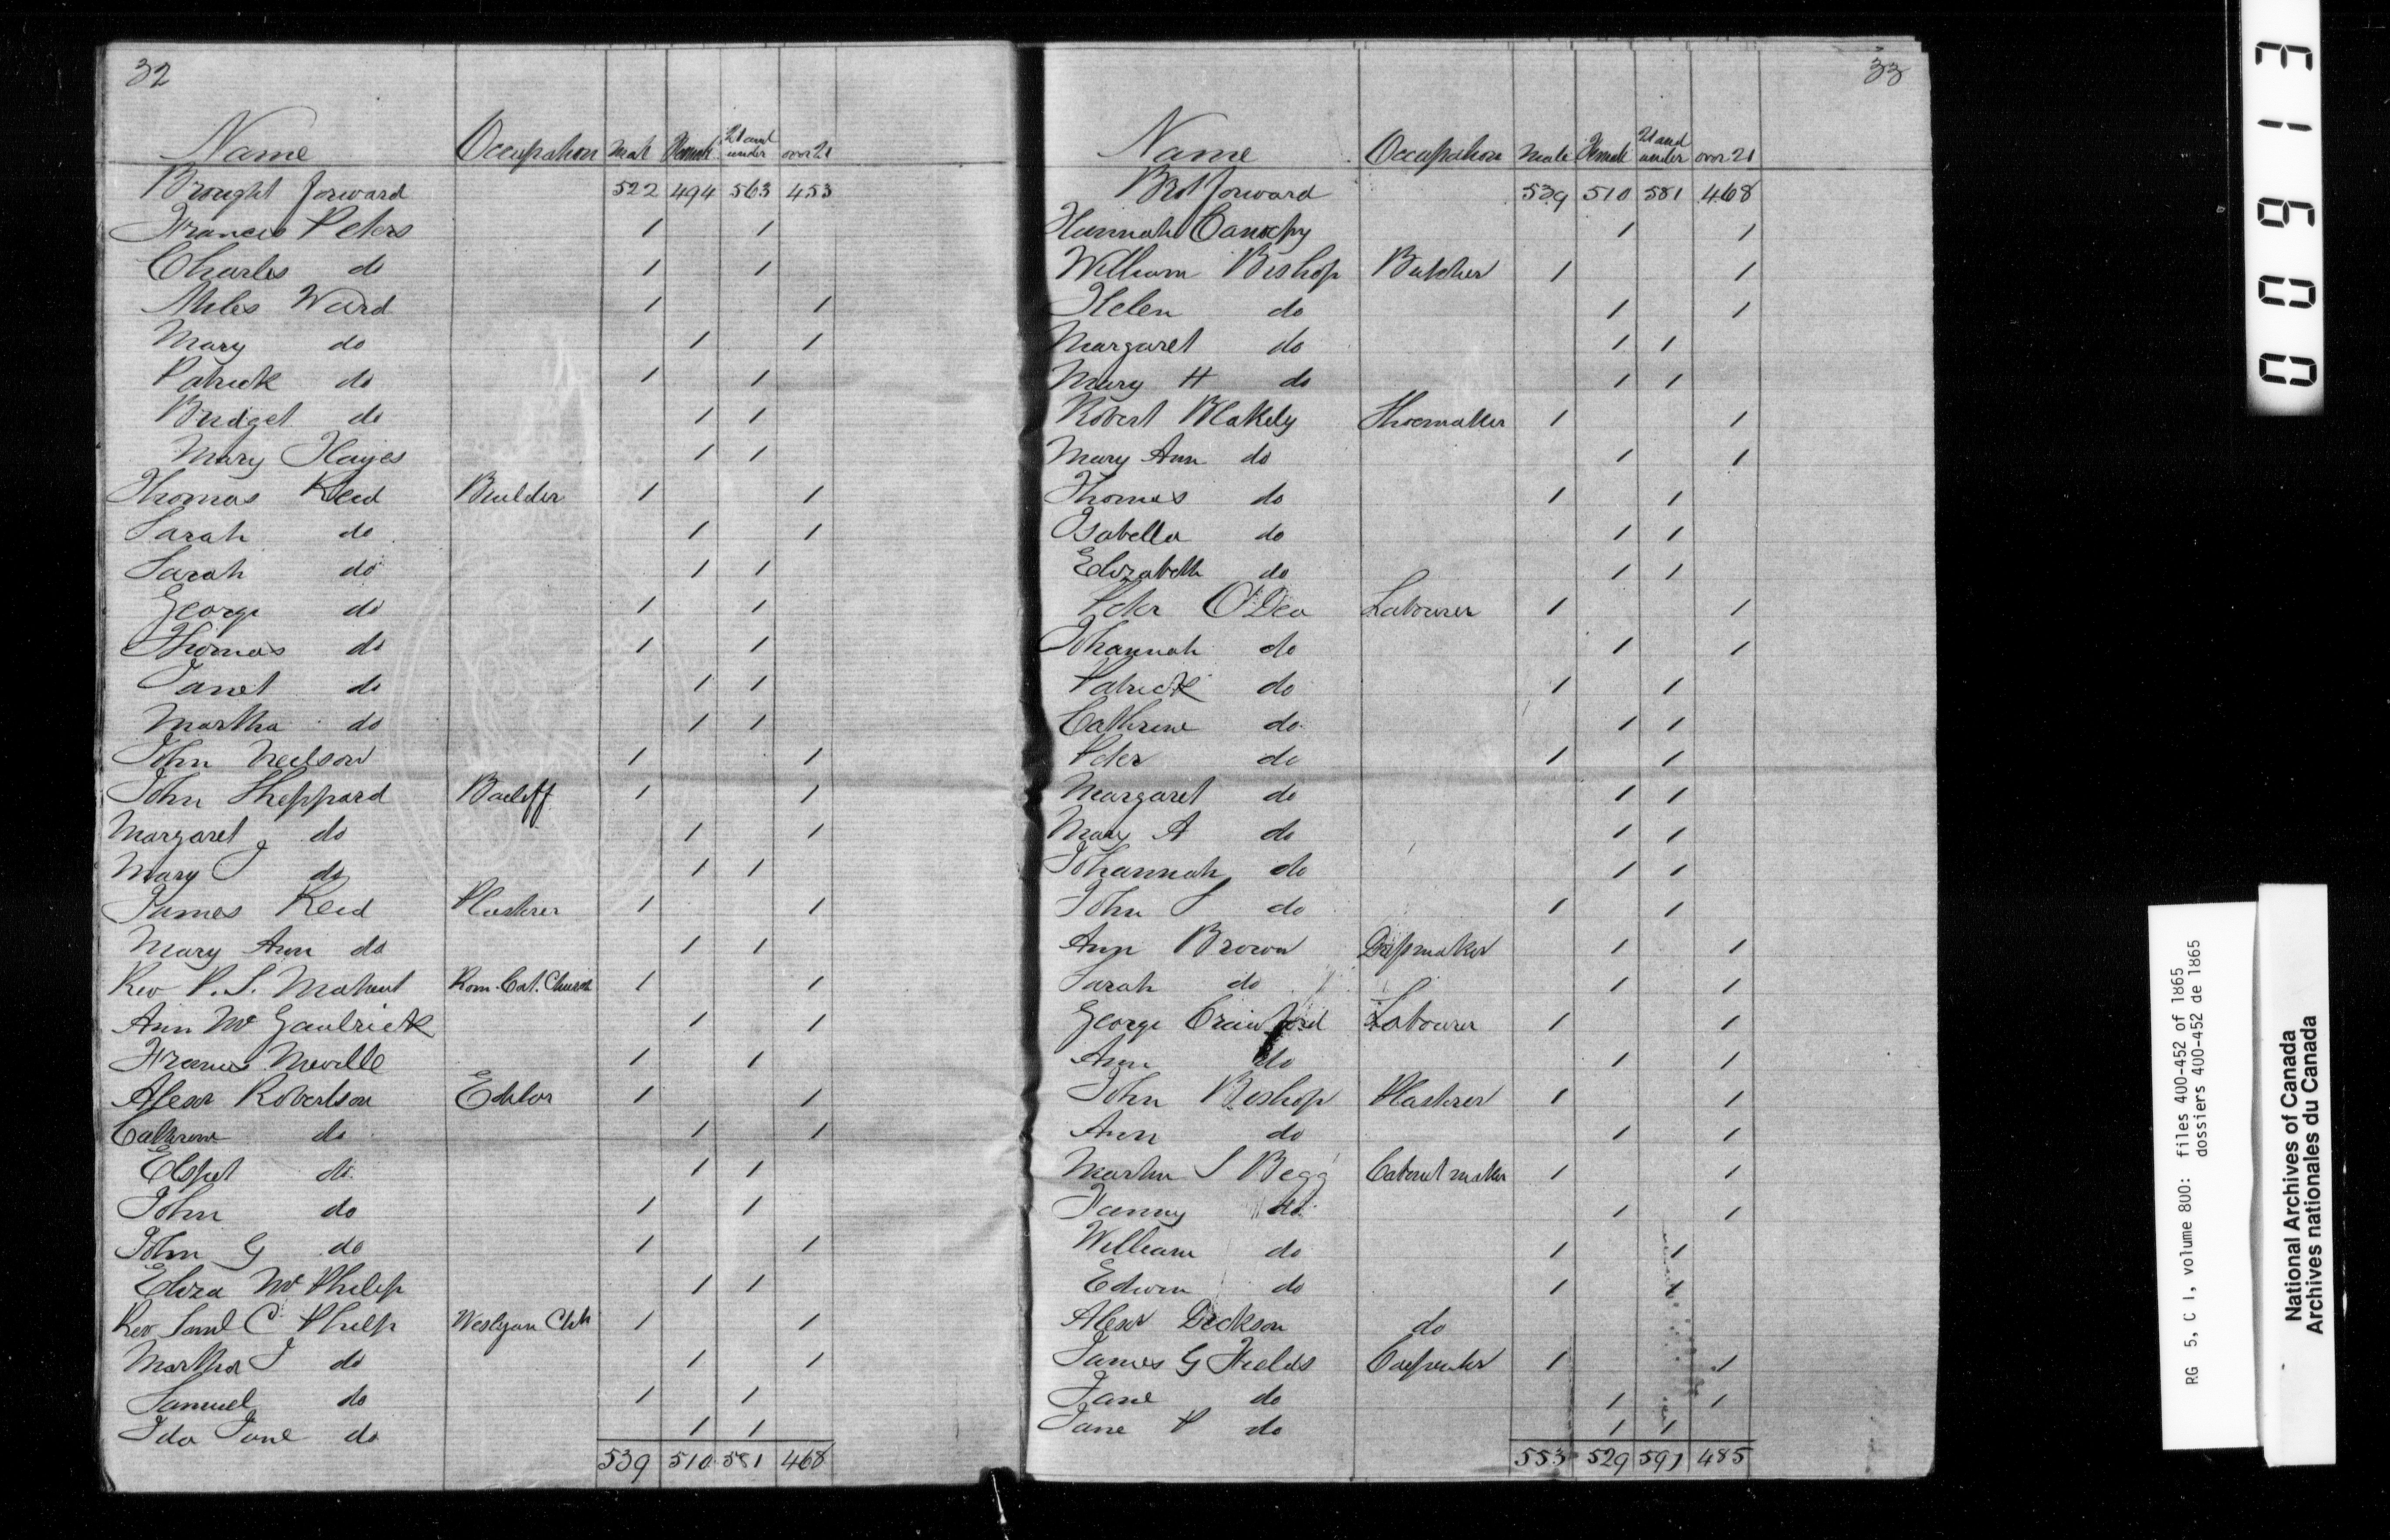 32
Name Occupation Male Female 21 and under over 21
Brought forward 522 494 563 453
Francis Peters 1 1
Charles do 1 1
Miles Ward 1 1
Mary do 1 1
Patrick do 1 1
Bridget do 1 1
Mary Hayes 1 1
Thomas Reid Builder 1 1
Sarah do 1 1
Sarah do 1 1
George do 1 1
Thomas do 1 1
Janet do 1 1
Martha do 1 1
John Neilson 1 1
John Sheppard Bailiff 1 1
Margaret do 1 1
Mary J do 1 1
James Reid Plasterer 1 1
Mary Ann do 1 1
Rev P. S. Maheut Rom. Cat. Church 1 1
Ann Mc Gaulrick 1 1
Francis Neville 1 1
Alexr Robertson Editor 1 1
Cathrine do 1 1
Elspet do 1 1
John do 1 1
John G do 1 1
Eliza Mc Philip 1 1
Rev Saml C Philp Wesleyan Chh 1 1
Martha J do 1 1
Samuel do 1 1
Ida Jane do 1 1
539 510 581 468
33
Name Occupation Male Female 21 and under over 21
Brot forward 539 510 581 468
Hannah 1 1
William Bishop Butcher 1 1
Helen do 1 1
Margaret do 1 1
Mary H do 1 1
Robert Blakely Shoemaker 1 1
Mary Ann do 1 1
Thomas do 1 1
Isabella do 1 1
Elizabeth do 1 1
Peter O'Dea Labourer 1 1
Johannah do 1 1
Patrick do 1 1
Cathrine do 1 1
Peter do 1 1
Margaret do 1 1
Mary A do 1 1
Johannah do 1 1
John S do 1 1
Ann Brown Dressmaker 1 1
Sarah do 1 1
George Crawford Labourer 1 1
Ann do 1 1
John Bishop Plasterer 1 1
Ann do 1 1
Martin S Begg Cabinet maker 1 1
Fanny do 1 1
William do 1 1
Edwin do 1 1
Alexr Dickson do
James G Fields Carpenter 1 1
Jane do 1 1
Jane P do 1 1
553 529 597 485
000913
RG 5, C 1, volume 800: files 400-452 of 1865
dossiers 400-452 de 1865
National Archives of Canada
Archives nationales du Canada